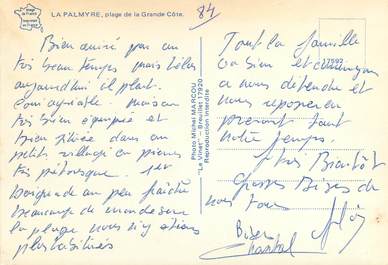 LA PALMYRE, plage de la Grande Côte.
84
Bien arrivé par un
très beau temps mais hélas
aujourd'hui il plait.
Coin agréable. maison
très bien équipée et
bien située dans un
petit village en pierres
très pittoresque. 1er
baignade un peu fraîche
beaucoup de monde sur
la plage nous n'y étions
plus habitués
Photo Michel MARCOU
"Le Vinet" - Breuillet 17920
Reproduction interdite
17592
Toute la famille
va bien et
a nous détendre et
nous reposer en
prenant tout
notre temps.
Très Bientôt
Grosses Bises de
nous tous
Bises
Chantal